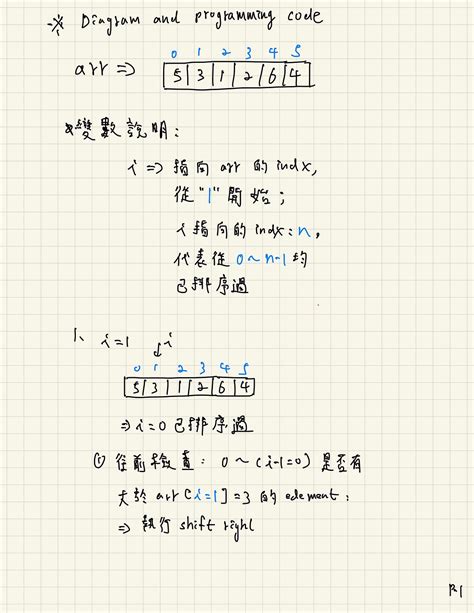 ※ Diagram and programming code
0 1 2 3 4 5
arr => 5 3 1 2 6 4
※變數說明:
i => 指向 arr 的 indx,
從 "1" 開始;
i 指向的 indx: n,
代表從 0~n-1 均
已排序過
1、 i=1 i
0 1 2 3 4 5
5 3 1 2 6 4
=> i=0 已排序過
(1) 往前檢查: 0 ~ (i-1=0) 是否有
大於 arr [i=1] = 3 的 element:
=> 執行 shift right
P.1